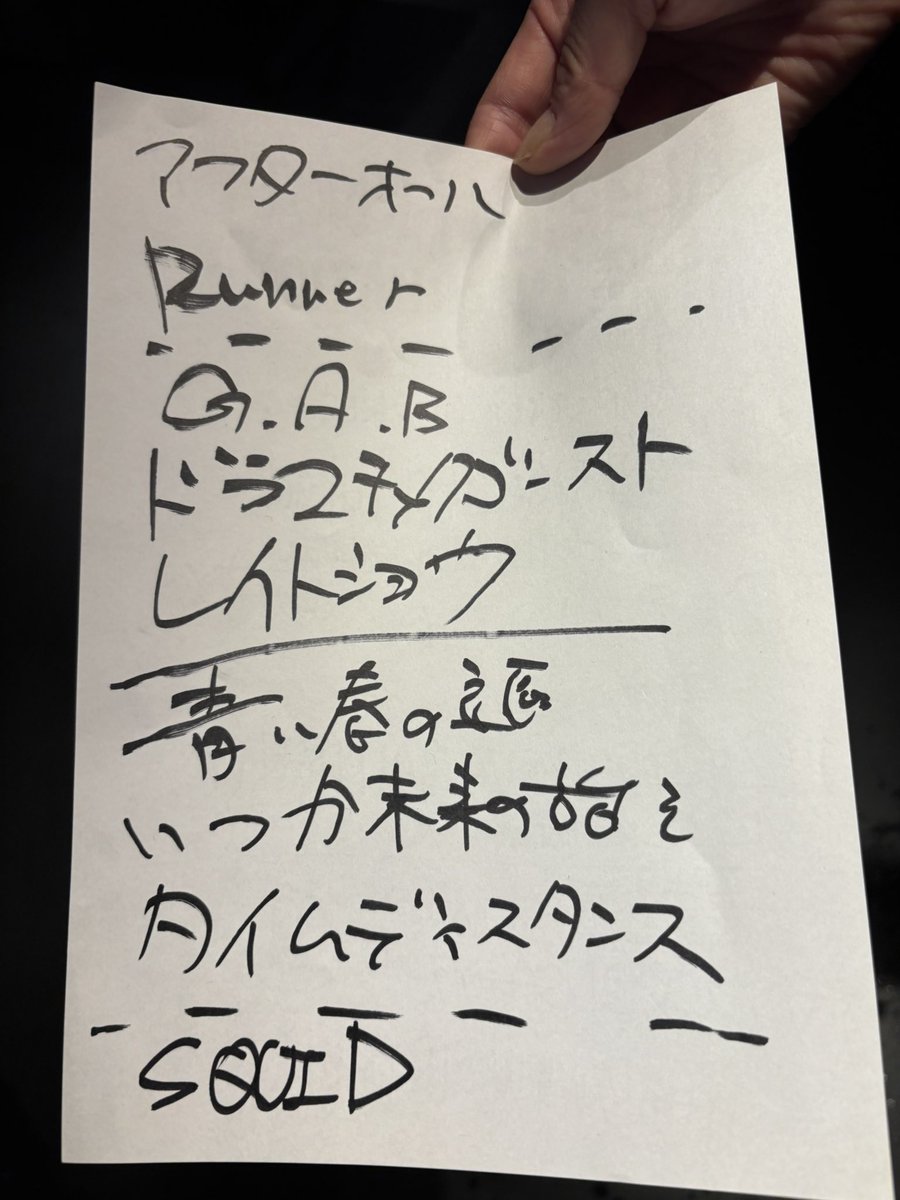 アフターオール
Runner
G.A.B
ドラスティックガースト
レイトショウ
青い春の
いつか未来の
タイムディスタンス
SQUID